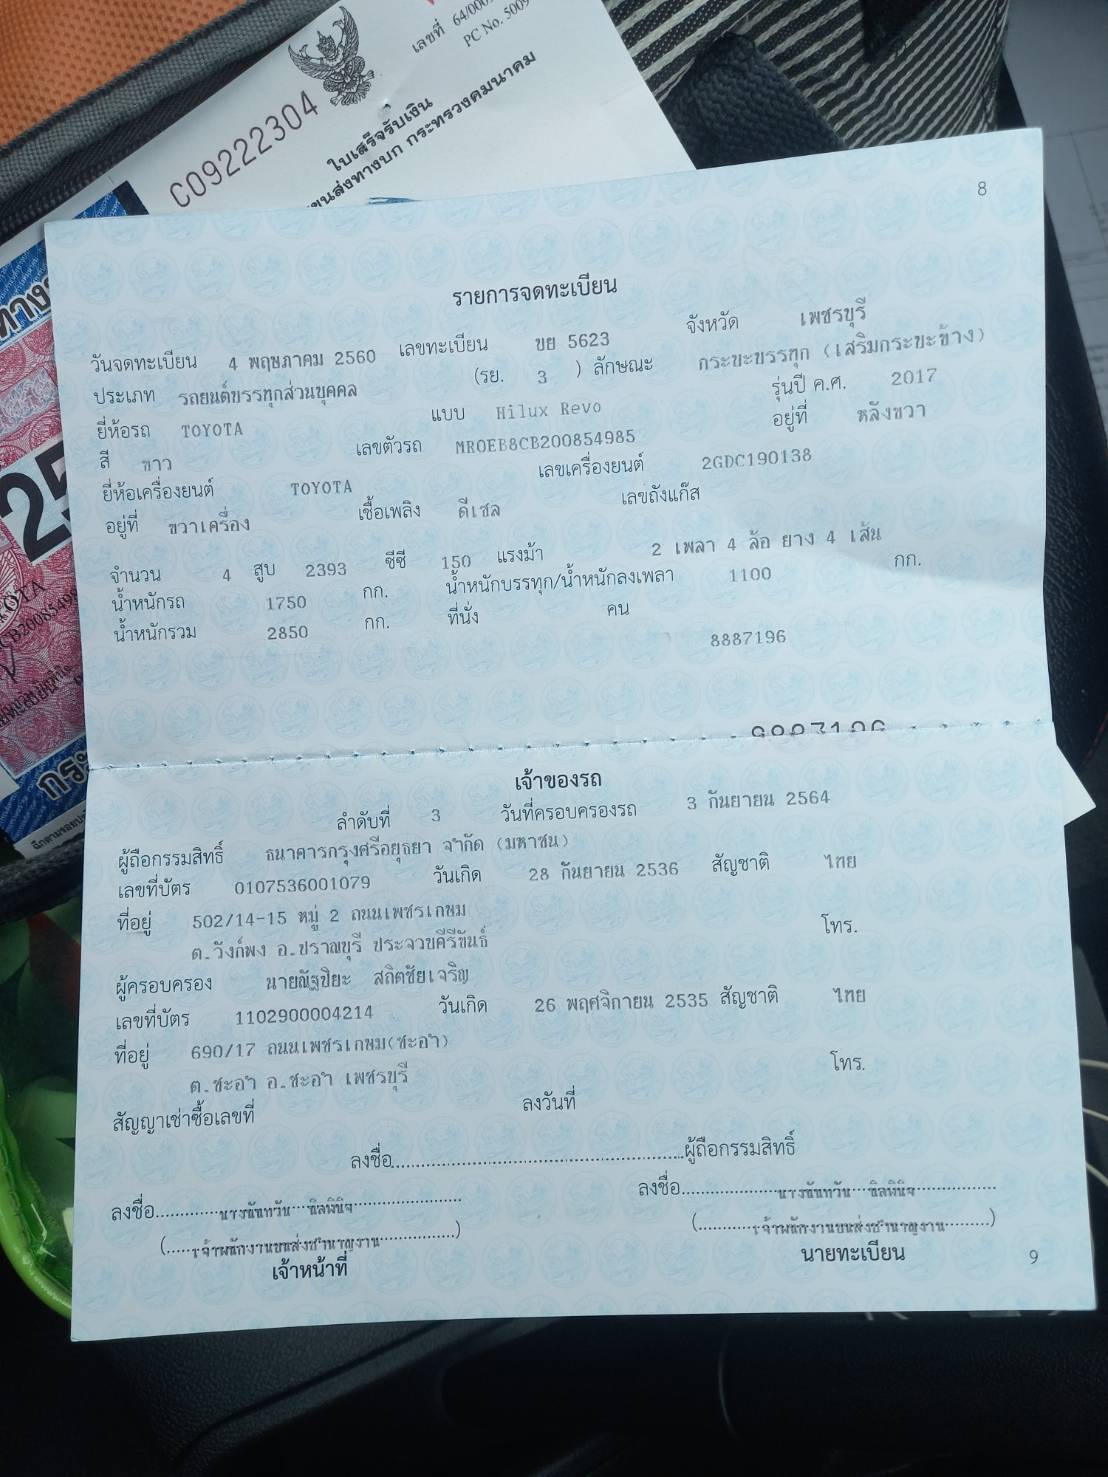 เลขที่ 64/000
PC No. 5009
C09222304
ใบเสร็จรับเงิน
ขนส่งทางบก กระทรวงคมนาคม
ทาง
25
8
รายการจดทะเบียน
วันจดทะเบียน 4 พฤษภาคม 2560 เลขทะเบียน ขย 5623 จังหวัด เพชรบุรี
ประเภท รถยนต์บรรทุกส่วนบุคคล (รย. 3 ) ลักษณะ กระบะบรรทุก (เสริมกระบะข้าง)
ยี่ห้อรถ TOYOTA แบบ Hilux Revo รุ่นปี ค.ศ. 2017
สี ขาว เลขตัวรถ MR0EB8CB200854985 อยู่ที่ หลังขวา
ยี่ห้อเครื่องยนต์ TOYOTA เลขเครื่องยนต์ 2GDC190138
อยู่ที่ ขวาเครื่อง เชื้อเพลิง ดีเซล เลขถังแก๊ส
จำนวน 4 สูบ 2393 ซีซี 150 แรงม้า 2 เพลา 4 ล้อ ยาง 4 เส้น
น้ำหนักรถ 1750 กก. น้ำหนักบรรทุก/น้ำหนักลงเพลา 1100 กก.
น้ำหนักรวม 2850 กก. ที่นั่ง คน
8887196
เจ้าของรถ
ลำดับที่ 3 วันที่ครอบครองรถ 3 กันยายน 2564
ผู้ถือกรรมสิทธิ์ ธนาคารกรุงศรีอยุธยา จำกัด (มหาชน)
เลขที่บัตร 0107536001079 วันเกิด 28 กันยายน 2536 สัญชาติ ไทย
ที่อยู่ 502/14-15 หมู่ 2 ถนนเพชรเกษม โทร.
ต.วังก์พง อ.ปราณบุรี ประจวบคีรีขันธ์
ผู้ครอบครอง นายณัฐปิยะ สถิตชัยเจริญ
เลขที่บัตร 1102900004214 วันเกิด 26 พฤศจิกายน 2535 สัญชาติ ไทย
ที่อยู่ 690/17 ถนนเพชรเกษม(ชะอำ) โทร.
ต.ชะอำ อ.ชะอำ เพชรบุรี
สัญญาเช่าซื้อเลขที่ ลงวันที่
ลงชื่อ..........ผู้ถือกรรมสิทธิ์
ลงชื่อ..........นางขันทวัน ทิลพินิจ.......... ลงชื่อ..........นางขันทวัน ทิลพินิจ..........
(.....เจ้าพนักงานขนส่งชำนาญงาน..........) (..........เจ้าพนักงานขนส่งชำนาญงาน.........)
เจ้าหน้าที่ นายทะเบียน
9